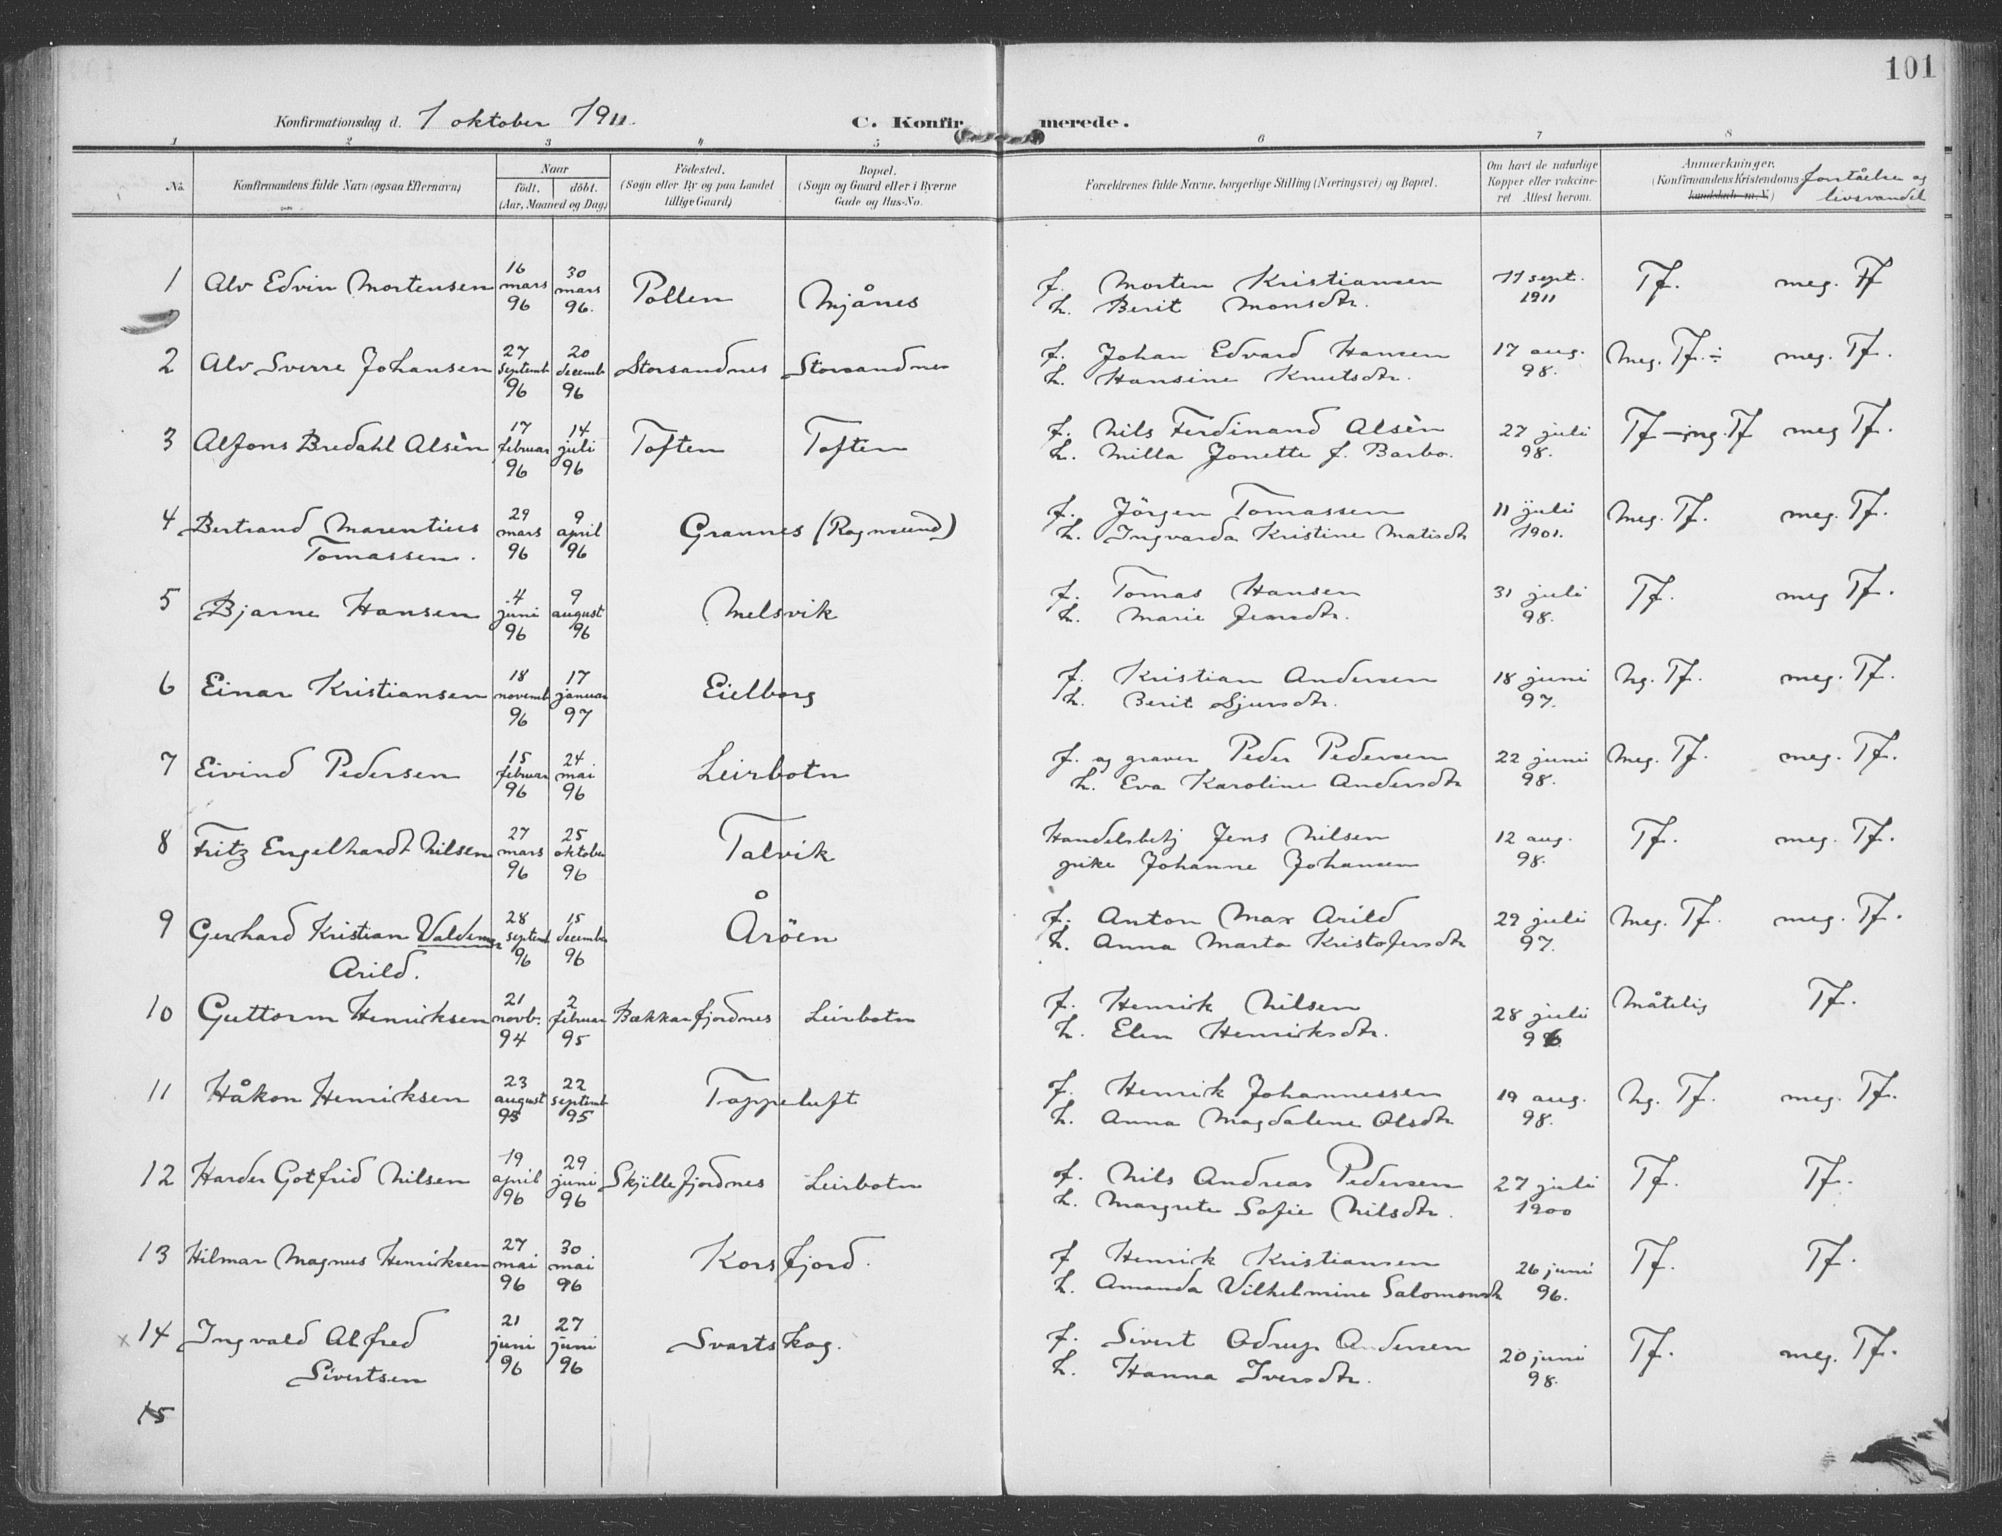 101
Konfirmationsdag d. 1 oktober 1911. C. Konfirmerede.
1 2 3 4 5 6 7 8
No. Konfirmandens fulde Navn (ogsaa Efternavn) Naar födt. döbt. (Aar, Maaned og Dag) Födested. (Sogn eller By og paa Landet tillige Gaard) Bopæl. (Sogn og Gaard eller i Byerne Gade og Hus-No. Forældrenes fulde Navne, borgerlige Stilling (Næringsvei) og Bopæl. Om havt de naturlige Kopper eller vakcineret. Attest herom. Anmærkninger. (Konfirmandens Kristendoms kundskab m. V.) forståelse og livsvandel
1 Alv Edvin Mortensen 16 mars 96 30 mars 96. Pollen Mjånes f. Morten Kristiansen 11 sept. 1911 Tf. meg. Tf
h. Berit Monsdtr.
2 Alv Sverre Johansen 27 septemb 96 20 decemb 96 Storsandnes Storsandnes f. Johan Edvard Hansen 17 aug. 98. Meg. Tf. ÷ meg. Tf.
h. Hansine Knutsdtr.
3 Alfons Bredahl Alsèn 17 februar 96 14 juli 96 Toften Toften f. Nils Ferdinand Alsèn 27 juli 98. Tf — mg. Tf meg Tf.
h. Milla Jonette f. Barbo.
4 Bertrand Marentius Tomassen. 29 mars 96 9 april 96 Grannes (Rognsund) f. Jörgen Tomassen 11 juli 1901. Meg. Tf. meg. Tf.
h. Ingvarda Kristine Matisdtr
5 Bjarne Hansen 4 juni 96 9 august 96 Melsvik f. Tomas Hansen 31 juli 98. Tf. meg Tf.
h. Marie Jensdtr.
6 Einar Kristiansen 18 novemb 96 17 januar 97 Eielborg f. Kristian Andersen 18 juni 97. Ng. Tf. meg. Tf.
h. Berit Sjursdtr.
7 Eivind Pedersen 15 februar 96 24 mai 96 Leirbotn f. og graver Peder Pedersen 22 juni 98. Meg. Tf. meg. Tf.
h. Eva Karoline Andersdtr
8 Fritz Engelhardt Nilsen 27 mars 96 25 oktober 96 Talvik Handelsbetj Jens Nilsen 12 aug. 98. Tf. meg. Tf.
pike Johanne Johansen
9 Gerhard Kristian Valdemar Arild. 28 septemb 96 15 december 96 Åröen f. Anton Max Arild 29 juli 97. Meg. Tf. meg. Tf.
h. Anna Marta Kristofersdtr
10 Guttorm Henriksen 21 novb. 94 2 februar 95 Bækkarfjordnes Leirbotn f. Henrik Nilsen 28 juli 96. Måtelig Tf.
h. Elen Henriksdtr.
11 Håkon Henriksen 23 august 95 22 septemb 95 Toppeluft f. Henrik Johannessen 19 aug. 98. Ng. Tf. meg. Tf.
h. Anna Magdalene Olsdtr
12 Harder Gotfrid Nilsen 19 april 96 29 juni 96 Skjillefjordnes Leirbotn f. Nils Andreas Pedersen 27 juli 1900 Tf. Tf.
h. Margrete Sofie Nilsdtr.
13 Hilmar Magnus Henriksen 27 mai 96 30 mai 96 Korsfjord. f Henrik Kristiansen 26 juni 96. Tf. Tf.
h. Amanda Vilhelmine Salomonsdtr
x 14 Ingvald Alfred Sivertsen 21 juni 96 27 juni 96 Svartskog. f. Sivert Odrup Andersen 20 juni 98. Tf. meg. Tf.
h. Hanna Iversdtr.
15